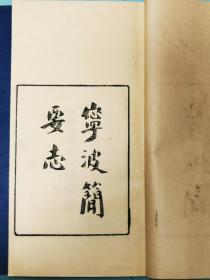 寧波簡
要志